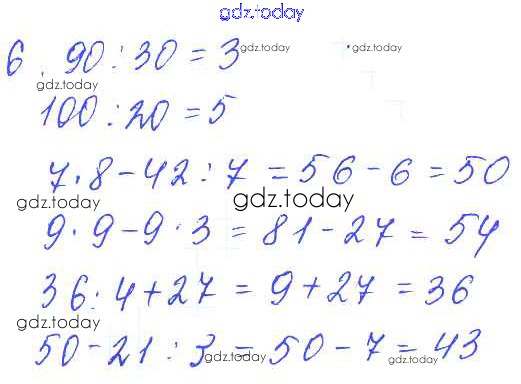 gdz.today
6. 90:30=3 gdz.today
gdz.today
100:20=5
7·8-42:7=56-6=50
gdz.today gdz.today
9·9-9·3=81-27=54
36:4+27=9+27=36
gdz.today
50-21:3=50-7=43
gdz.today gdz.today